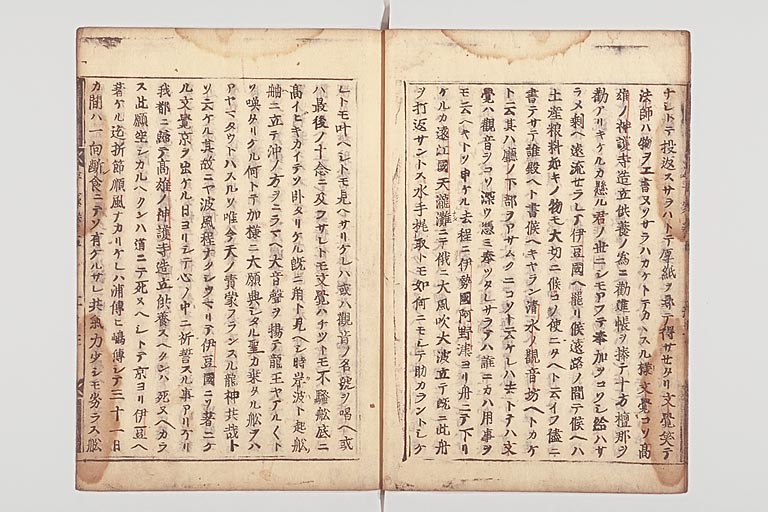 ナントテ投返スサラハトテ厚紙ヲ尋テ得サセタリ文覚笑テ
法師ハ物ヲエ書ヌソサラハカケトテカヽスル様文覚コソ高
雄ノ神護寺造立供養ノ為ニ勧進帳ヲ捧テ十方檀那ヲ
勧アリキケルカ懸ル君ノ世ニシモアフテ奉加ヲコソシ給ハサ
ラメ剰ヘ遠流セラレテ伊豆國ヘ罷リ候遠路ノ間テ候ヘハ
土産粮料如キノ物モ大切ニ候コノ使ニタヘト云イフ儘ニ
書テサテ誰殿ヘト書候ヘキヤラン清水ノ観音坊ヘトカケ
ト云其ハ廳ノ下部ヲアサムクニコソト云ケレハ去トテハ文
覚ハ観音ヲコソ深ウ憑ミ奉ツタレサラテハ誰ニカハ用事ヲ
モ云ヘキトソ申ケル去程ニ伊勢國阿野津ヨリ舟ニテ下リ
ケルカ遠江國天龍灘ニテ俄ニ大風吹大波立テ既ニ此舟
ヲ打返サントス水手挑取トモ如何ニモシテ助カラントシケ
レトモ叶ヘシトモ見ヘサリケレハ或ハ観音ノ名號ヲ唱ヘ或
ハ最後ノ十念ニ及フサレトモ文覚ハチツトモ不騒舩底ニ
高イヒキカイテソ臥タリケル既ニ角ト見ヘシ時岸波ト起舩
舳ニ立テ沖ノ方ヲニラマヘ大音聲ヲ揚テ龍王ヤアルヽト
ソ喚タリケル何トテ加様ニ大願興シタル聖カ乗タル舩ヲハ
アヤマタウトハスルソ唯今天ノ責蒙フランスル龍神共哉ト
ソ云ケル其故ニヤ波風程ナクシツマリテ伊豆國ニソ著ニケ
ル文覚京ヲ出ケル日ヨリシテ心ノ中ニ祈誓スル事アリケリ
我都ニ歸テ高雄ノ神護寺造立供養スヘクンハ死ヌヘカラ
ス此願空シカルヘクンハ道ニテ死ヌヘシトテ京ヨリ伊豆ヘ
著ケル迄折節順風ナカリケレハ浦傳ヒ嶋傳シテ三十一日
カ間ハ一向断食ニテソ有ケルサレ共氣力少シモ劣ラス舩